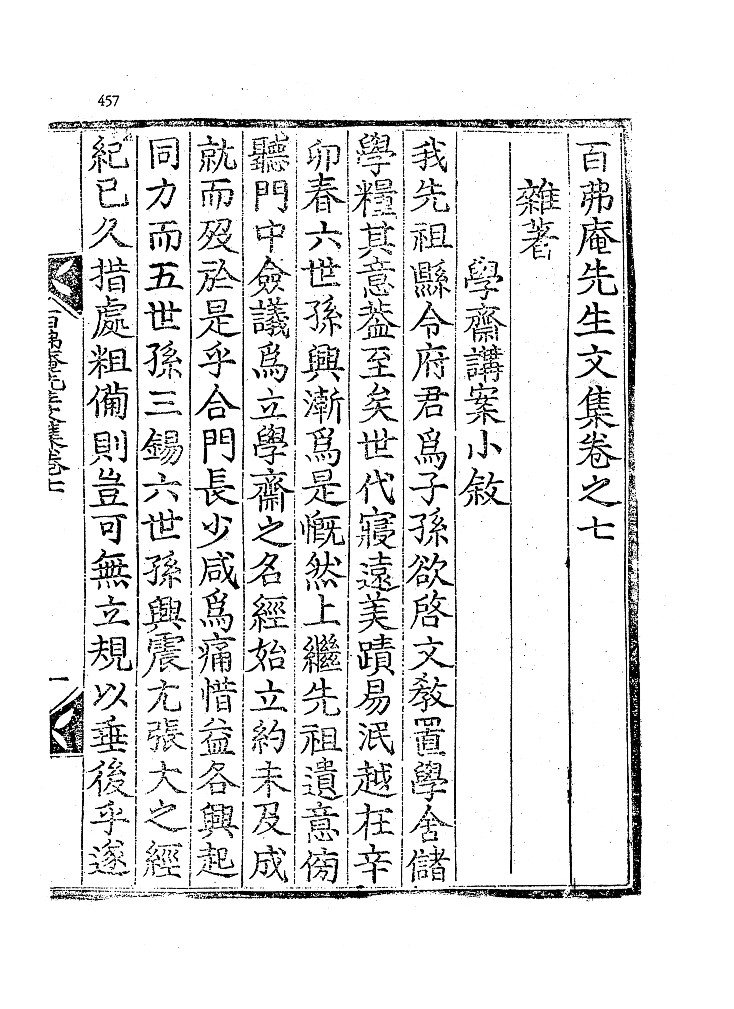 457
百弗庵先生文集卷之七
雜著
學齋講案小敘
我先祖縣令府君爲子孫欲啓文敎置學舍儲
學糧其意葢至矣世代寢遠美蹟易泯越在辛
卯春六世孫興漸爲是慨然上繼先祖遺意傍
聽門中僉議爲立學齋之名經始立約未及成
就而歿於是乎合門長少咸爲痛惜益各興起
同力而五世孫三錫六世孫興震尤張大之經
紀已久措處粗備則豈可無立規以垂後乎遂
百弗庵先生文集卷七
一